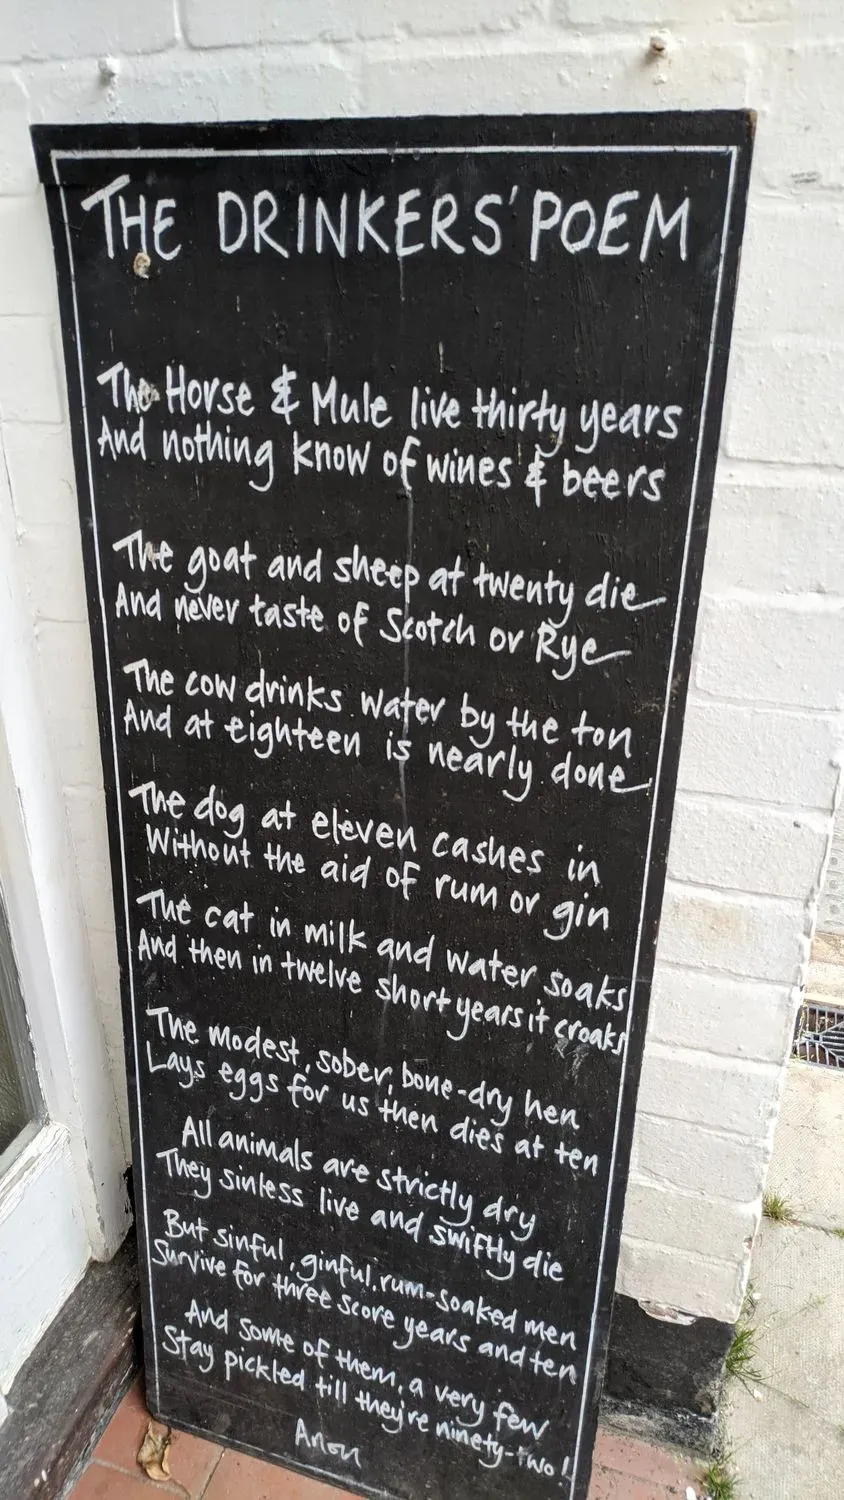 THE DRINKERS' POEM
The Horse & Mule live thirty years
And nothing know of wines & beers
The goat and sheep at twenty die
And never taste of Scotch or Rye
The cow drinks water by the ton
And at eighteen is nearly done
The dog at eleven cashes in
Without the aid of rum or gin
The cat in milk and water soaks
And then in twelve short years it croaks
The modest, sober, bone-dry hen
Lays eggs for us then dies at ten
All animals are strictly dry
They sinless live and swiftly die
But sinful, ginful, rum-soaked men
Survive for three score years and ten
And some of them, a very few
Stay pickled till they're ninety-two!
Anon